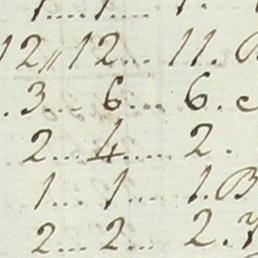 1....1.... 1.
12,,12... 11.
. 3.... 6.... 6.
2....4..... 2.
1.... 1.... 1. B
2.... 2.... 2.